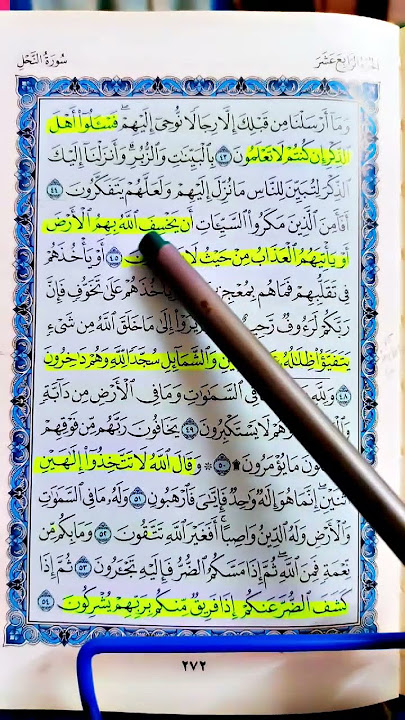 سُورَةُ النَّحْلِ
الجُزْءُ الرَّابِعَ عَشَرَ
وَمَآ أَرْسَلْنَا مِن قَبْلِكَ إِلَّا رِجَالًا نُّوحِىٓ إِلَيْهِمْ ۖ فَسْـَٔلُوٓا۟ أَهْلَ
ٱلذِّكْرِ إِن كُنتُمْ لَا تَعْلَمُونَ ٤٣ بِٱلْبَيِّنَـٰتِ وَٱلزُّبُرِ ۗ وَأَنزَلْنَآ إِلَيْكَ
ٱلذِّكْرَ لِتُبَيِّنَ لِلنَّاسِ مَا نُزِّلَ إِلَيْهِمْ وَلَعَلَّهُمْ يَتَفَكَّرُونَ ٤٤
أَفَأَمِنَ ٱلَّذِينَ مَكَرُوا۟ ٱلسَّيِّـَٔاتِ أَن يَخْسِفَ ٱللَّهُ بِهِمُ ٱلْأَرْضَ
أَوْ يَأْتِيَهُمُ ٱلْعَذَابُ مِنْ حَيْثُ لَا ٤٥ أَوْ يَأْخُذَهُمْ
فِى تَقَلُّبِهِمْ فَمَا هُم بِمُعْجِزِينَ يَأْخُذَهُمْ عَلَىٰ تَخَوُّفٍ فَإِنَّ
رَبَّكُمْ لَرَءُوفٌ رَّحِيمٌ يَرَوْا۟ إِلَىٰ مَا خَلَقَ ٱللَّهُ مِن شَىْءٍ
يَتَفَيَّؤُا۟ ظِلَـٰلُهُۥ وَٱلشَّمَآئِلِ سُجَّدًا لِّلَّهِ وَهُمْ دَٰخِرُونَ
٤٨ وَلِلَّهِ فِى ٱلسَّمَـٰوَٰتِ وَمَا فِى ٱلْأَرْضِ مِن دَآبَّةٍ
وَهُمْ لَا يَسْتَكْبِرُونَ ٤٩ يَخَافُونَ رَبَّهُم مِّن فَوْقِهِمْ
مَا يُؤْمَرُونَ ۩ ٥٠ ۞ وَقَالَ ٱللَّهُ لَا تَتَّخِذُوٓا۟ إِلَـٰهَيْنِ
ٱثْنَيْنِ ۖ إِنَّمَا هُوَ إِلَـٰهٌ وَٰحِدٌ ۖ فَإِيَّـٰىَ فَٱرْهَبُونِ ٥١ وَلَهُۥ مَا فِى ٱلسَّمَـٰوَٰتِ
وَٱلْأَرْضِ وَلَهُ ٱلدِّينُ وَاصِبًا ۚ أَفَغَيْرَ ٱللَّهِ تَتَّقُونَ ٥٢ وَمَا بِكُم مِّن
نِّعْمَةٍ فَمِنَ ٱللَّهِ ۖ ثُمَّ إِذَا مَسَّكُمُ ٱلضُّرُّ فَإِلَيْهِ تَجْـَٔرُونَ ٥٣ ثُمَّ إِذَا
كَشَفَ ٱلضُّرَّ عَنكُمْ إِذَا فَرِيقٌ مِّنكُم بِرَبِّهِمْ يُشْرِكُونَ ٥٤
٢٧٢